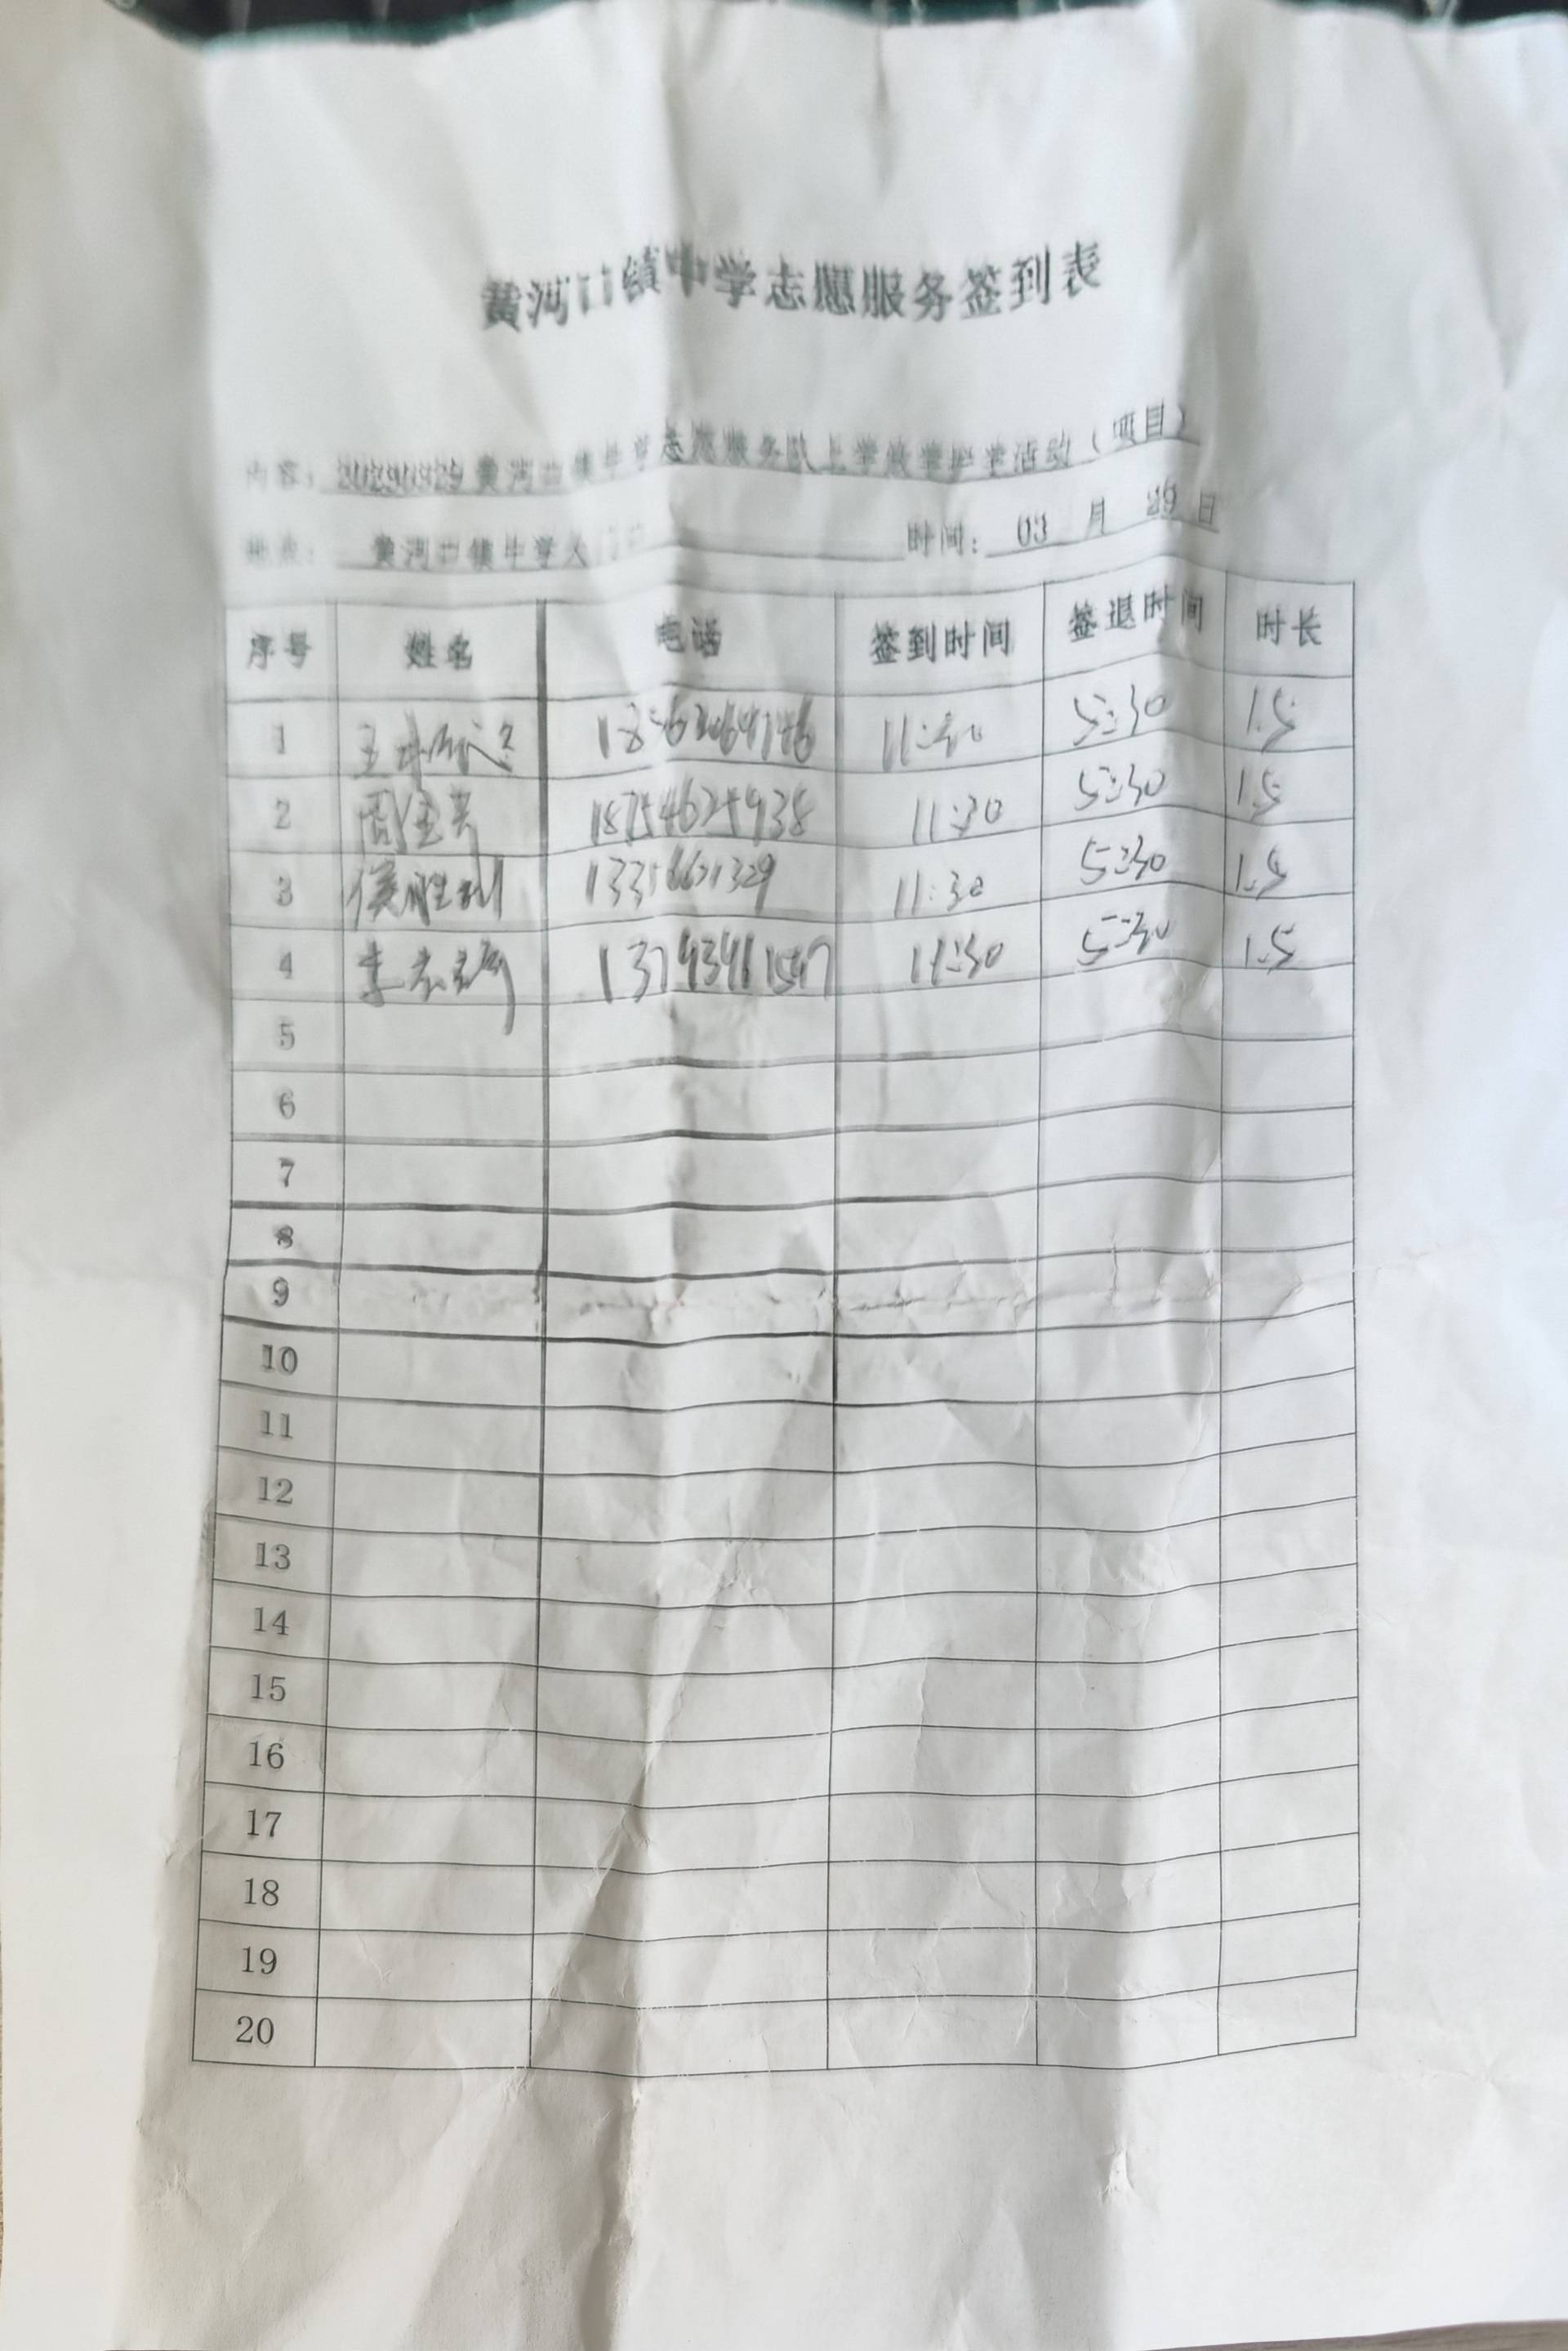 黄河口镇中学志愿服务签到表
内容：黄河口镇中学志愿服务队上学放学护学活动（项目）
地点：黄河口镇中学大门口 时间：03 月 29 日
序号 姓名 电话 签到时间 签退时间 时长
1 18562064746 11:30 5:30 1.5
2 周金芳 18754625938 11:30 5:30 1.5
3 侯胜利 13356621329 11:30 5:30 1.5
4 李 11:30 5:30 1.5
5
6
7
8
9
10
11
12
13
14
15
16
17
18
19
20